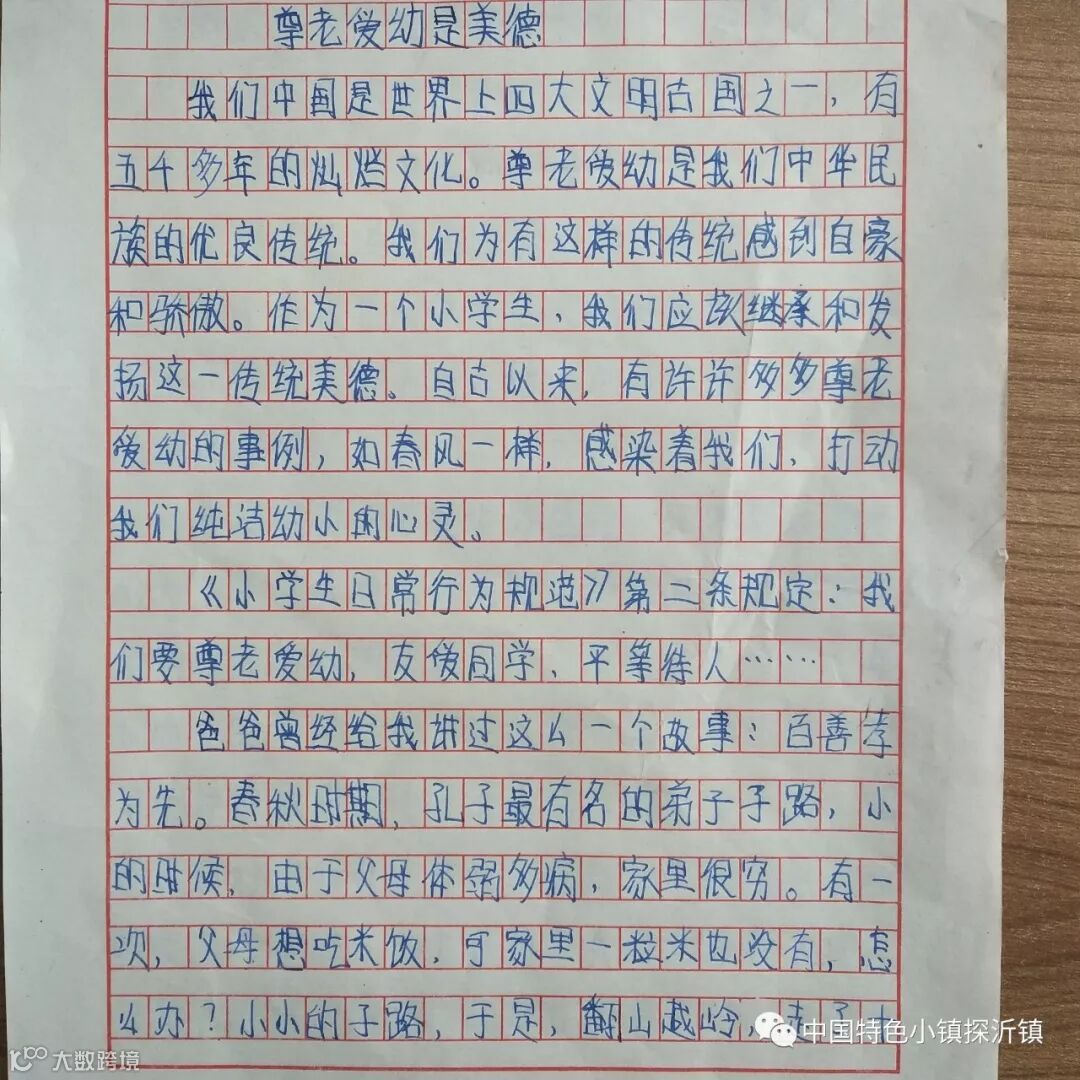 尊老爱幼是美德
我们中国是世界上四大文明古国之一，有
五千多年的灿烂文化。尊老爱幼是我们中华民
族的优良传统。我们为有这样的传统感到自豪
和骄傲。作为一个小学生，我们应该继承和发
扬这一传统美德。自古以来，有许许多多尊老
爱幼的事例，如春风一样，感染着我们，打动
我们纯洁幼小的心灵。
《小学生日常行为规范》第二条规定：我
们要尊老爱幼，友爱同学，平等待人……
爸爸曾经给我讲过这么一个故事：百善孝
为先。春秋时期，孔子最有名的弟子子路，小
的时候，由于父母体弱多病，家里很穷。有一
次，父母想吃米饭，可家里一粒米也没有，怎
么办？小小的子路，于是，翻山越岭，走了十
中国特色小镇探沂镇
大数跨境